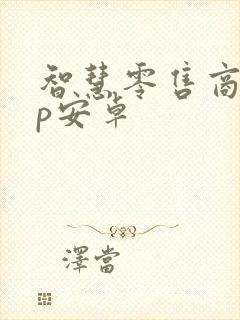 智慧零售商
p安卓
澤當